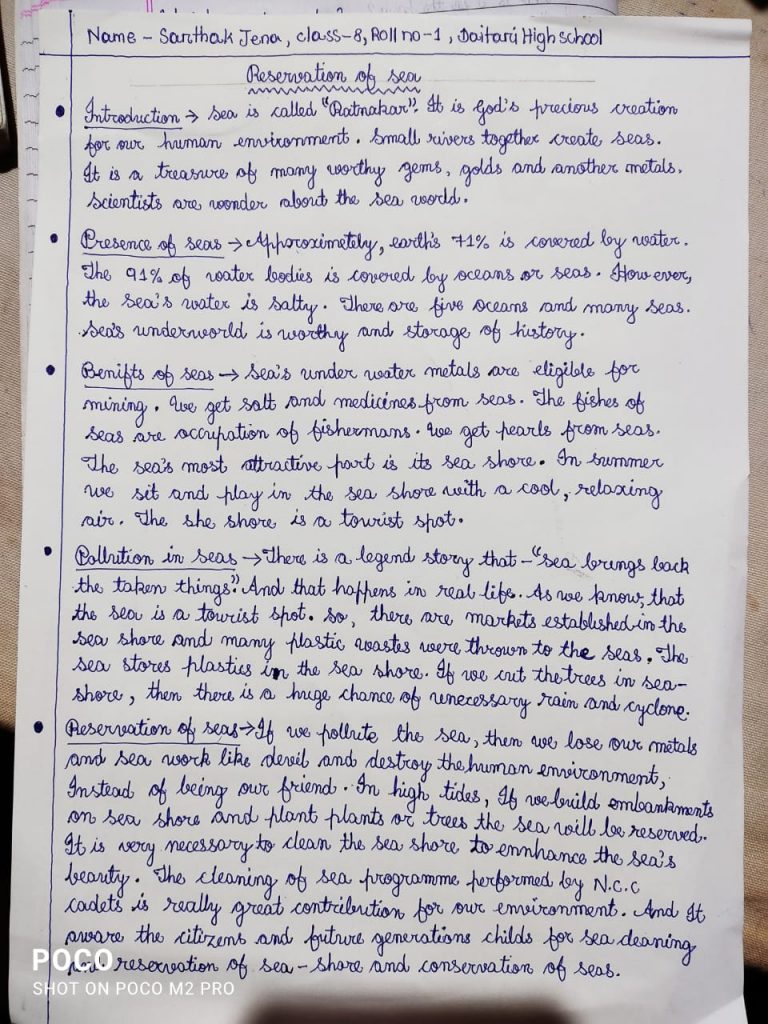 Name - Sarthak Jena, class-8, Roll no-1, Daitari High school
Reservation of sea
• Introduction → Sea is called "Ratnakar". It is God's precious creation
for our human environment. Small rivers together create seas.
It is a treasure of many worthy gems, golds and another metals.
Scientists are wonder about the sea world.
• Presence of seas → Approximetely, earth's 71% is covered by water.
The 91% of water bodies is covered by oceans or seas. However,
the sea's water is salty. There are five oceans and many seas.
Sea's underworld is worthy and storage of history.
• Benifts of seas → Sea's under water metals are eligible for
mining. We get salt and medicines from seas. The fishes of
seas are occupation of fishermans. We get pearls from seas.
The sea's most attractive part is its sea shore. In summer
we sit and play in the sea shore with a cool, relaxing
air. The she shore is a tourist spot.
• Pollution in seas → There is a legend story that - "Sea brings back
the taken things". And that happens in real life. As we know, that
the sea is a tourist spot. So, there are markets established in the
sea shore and many plastic wastes were thrown to the seas. The
sea stores plastics in the sea shore. If we cut the trees in sea-
shore, then there is a huge chance of unecessary rain and cyclone.
• Reservation of seas → If we pollute the sea, then we lose our metals
and sea work like devil and destroy the human environment,
Instead of being our friend. In high tides, If we build embankments
on sea shore and plant plants or trees the sea will be reserved.
It is very necessary to clean the sea shore to ennhance the sea's
beauty. The cleaning of sea programme performed by N.C.C
cadets is really great contribution for our environment. And It
aware the citizens and future generations childs for sea cleaning
reservation of sea-shore and conservation of seas.
POCO
SHOT ON POCO M2 PRO